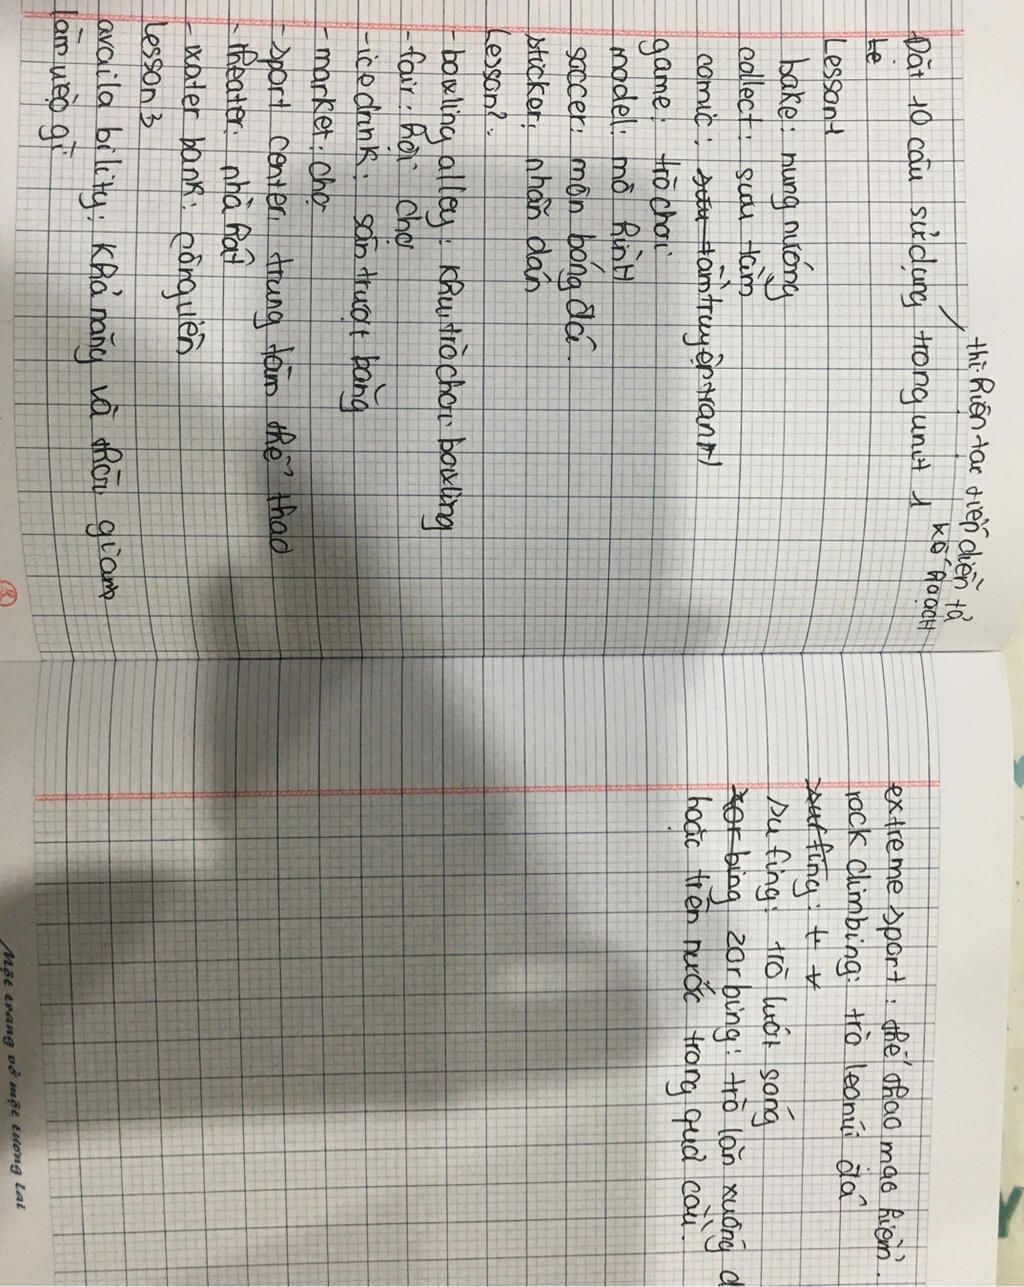 thì hiện tại tiến diễn tả
kế hoạch
Đặt 10 câu sử dụng trong unit 1
te
Lesson1
bake: nung nướng
collect: sưu tầm
comic: sưu tầm truyện tranh
game: trò chơi
model: mô hình
soccer: môn bóng đá.
sticker: nhãn dán
Lesson2:
- bowling alley: khu trò chơi bowling
- fair: hội chợ
- ice drink: sân trượt băng
- market: chợ
- sport center: trung tâm thể thao
- theater: nhà hát
- water bank: công viên
Lesson 3
availa bility: khả năng và thời gian
làm việc gì
extreme sport: thể thao mạo hiểm.
rock climbing: trò leo núi đá
surfing: t v
su fing: trò lướt sóng
zor bing zorbing: trò lăn xuống d
hoặc trên nước trong quả cầu.
Một trang vở một tương lai